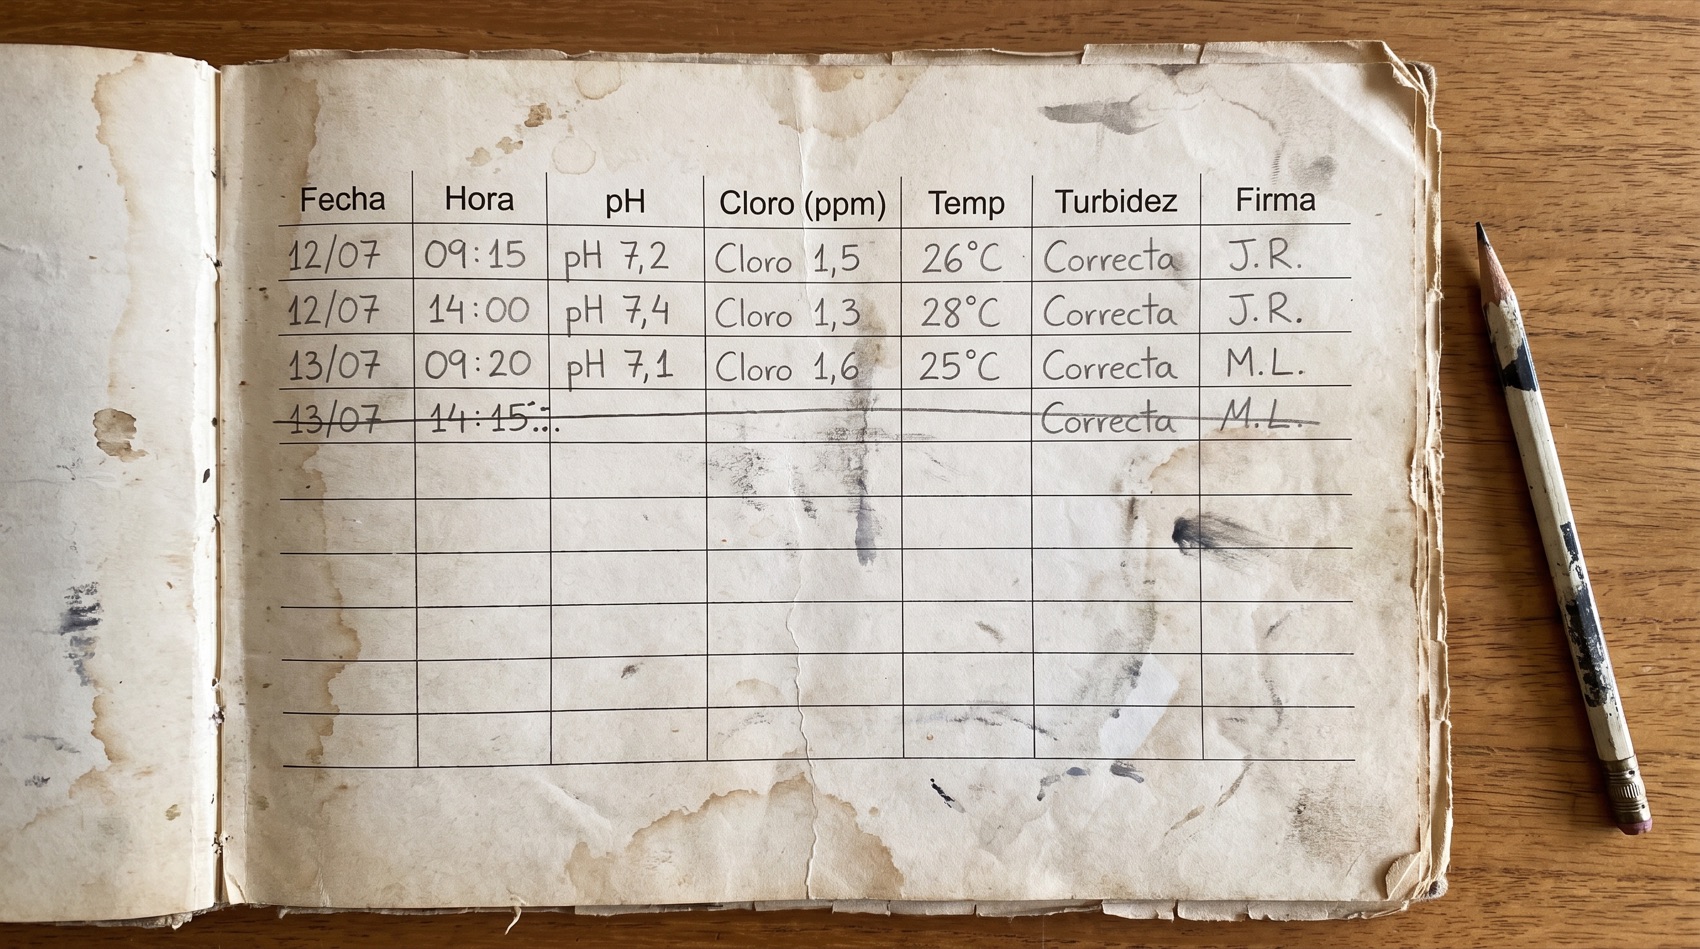 Fecha Hora pH Cloro (ppm) Temp Turbidez Firma
12/07 09:15 pH 7,2 Cloro 1,5 26°C Correcta J.R.
12/07 14:00 pH 7,4 Cloro 1,3 28°C Correcta J.R.
13/07 09:20 pH 7,1 Cloro 1,6 25°C Correcta M.L.
13/07 14:15 Correcta M.L.